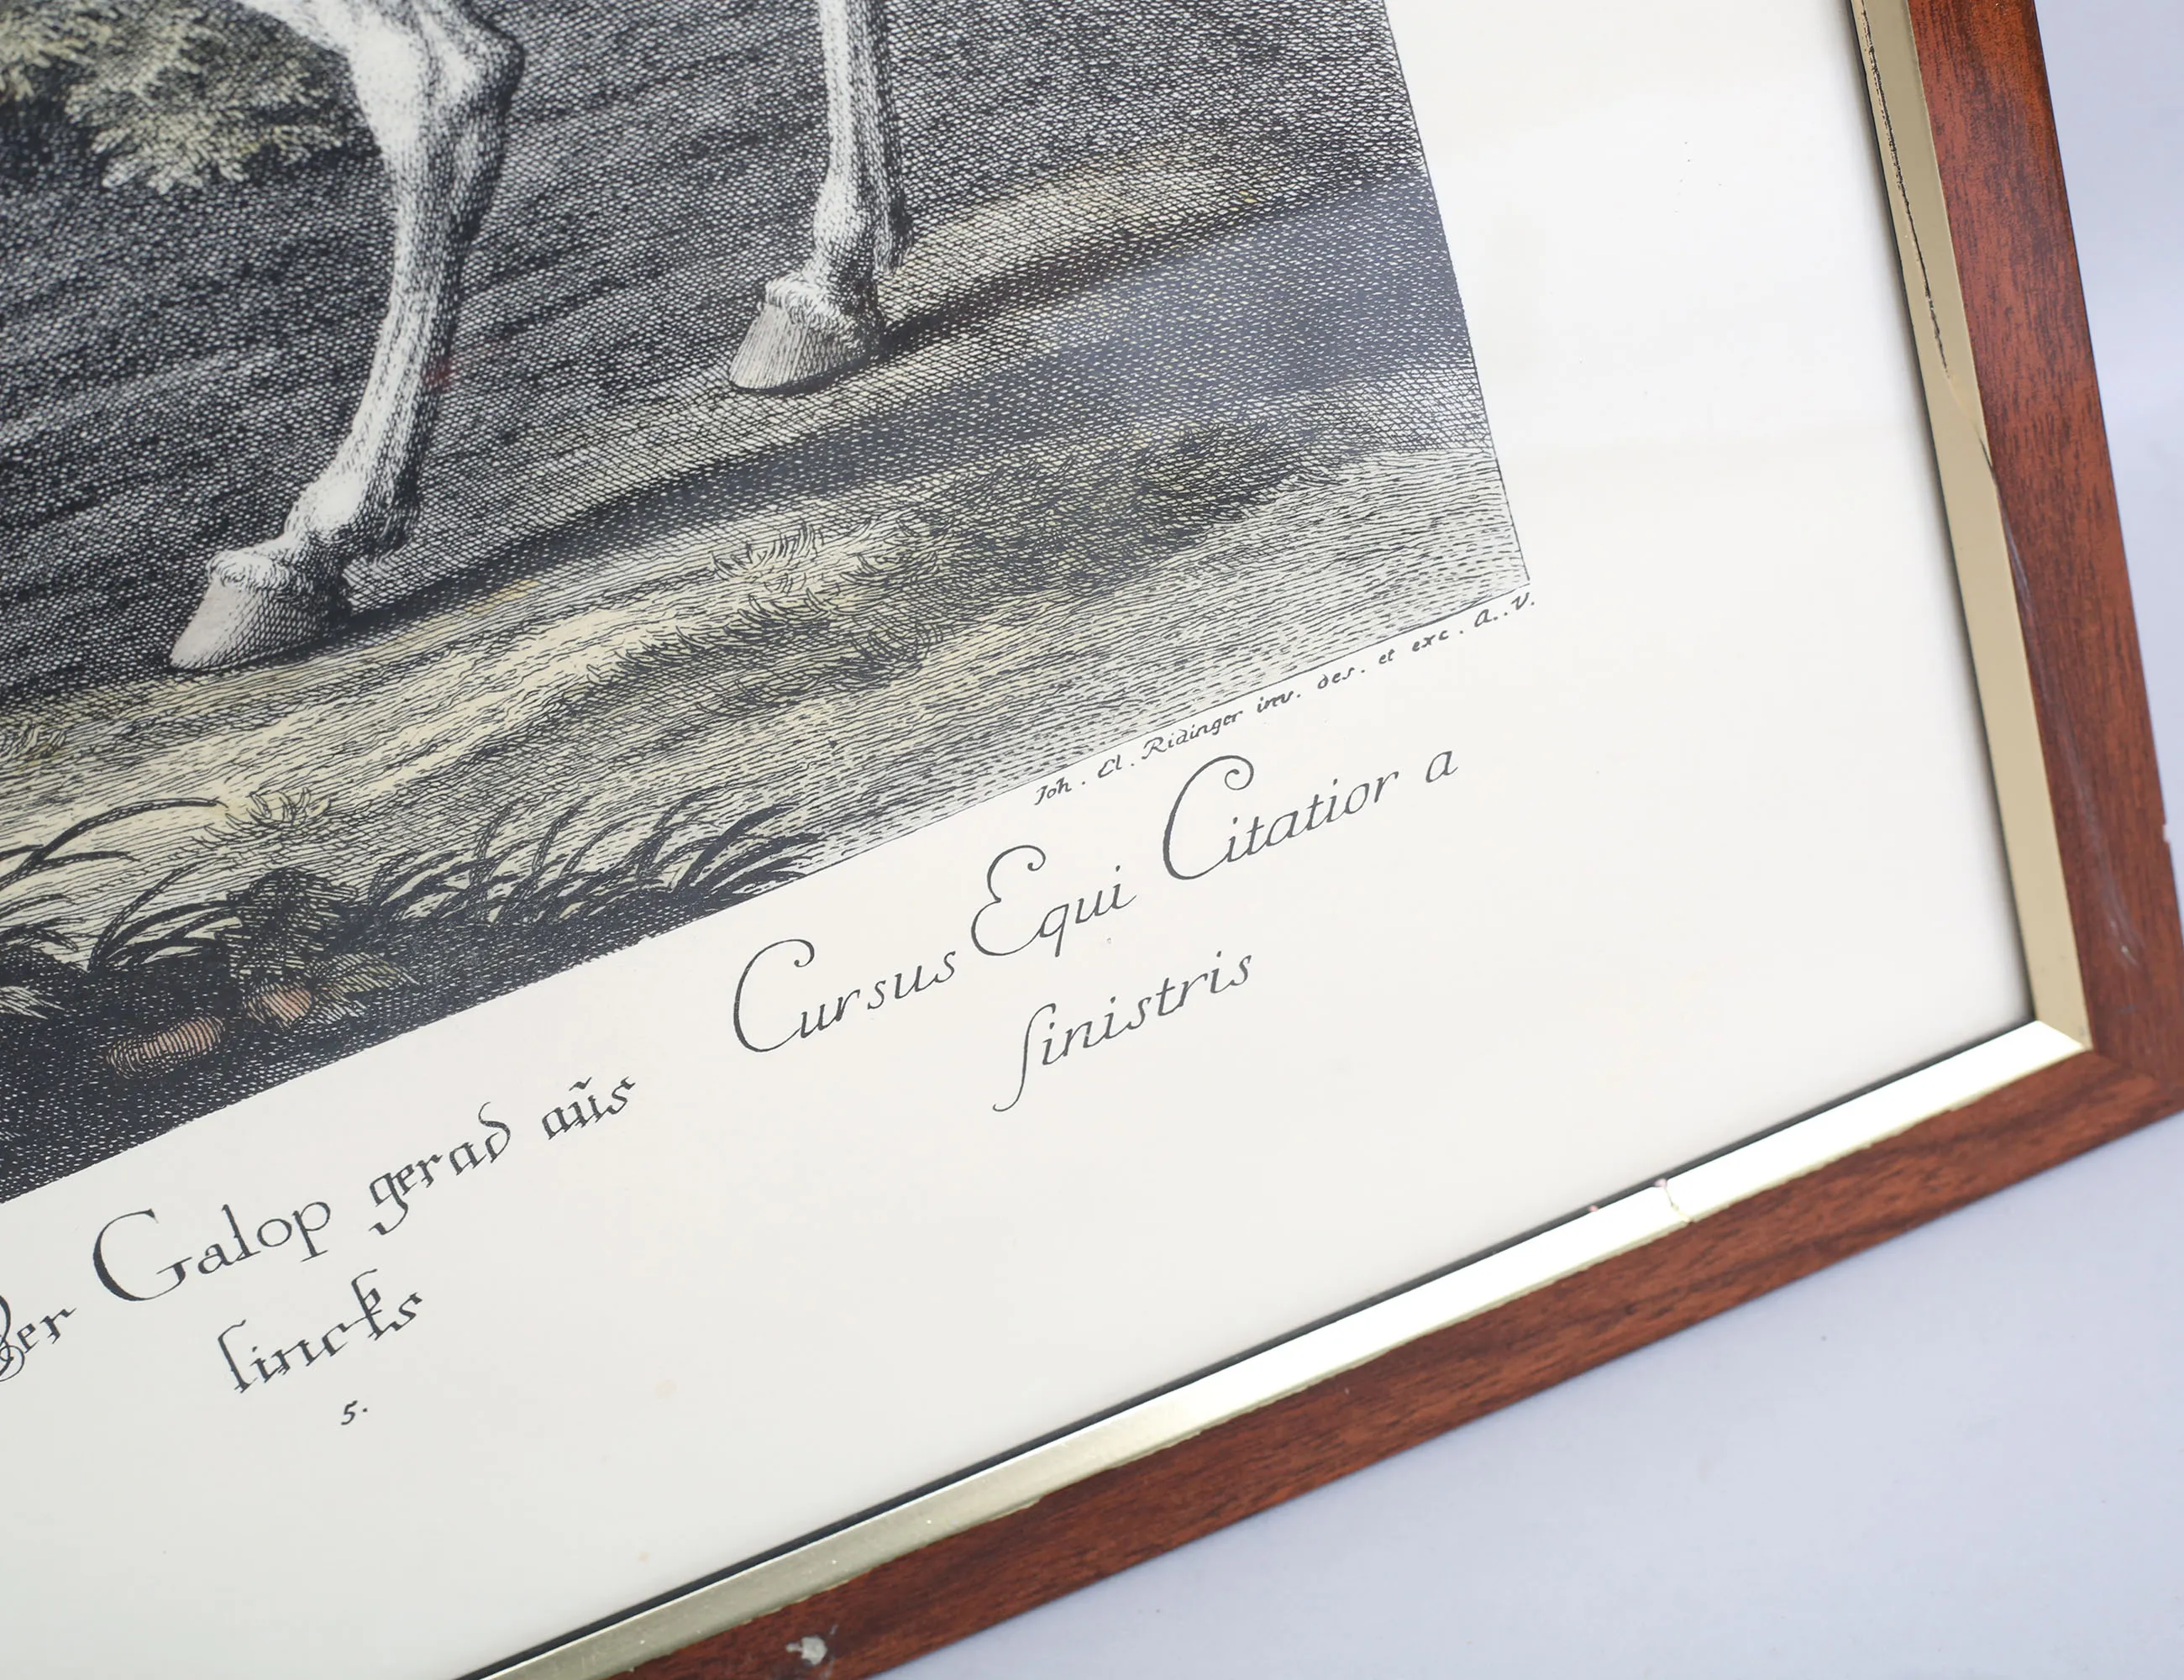 Joh. El. Ridinger inv. des. et exc. A. V.
Der Galop gerad aũs
lincks
5.
Cursus Equi Citatior a
sinistris